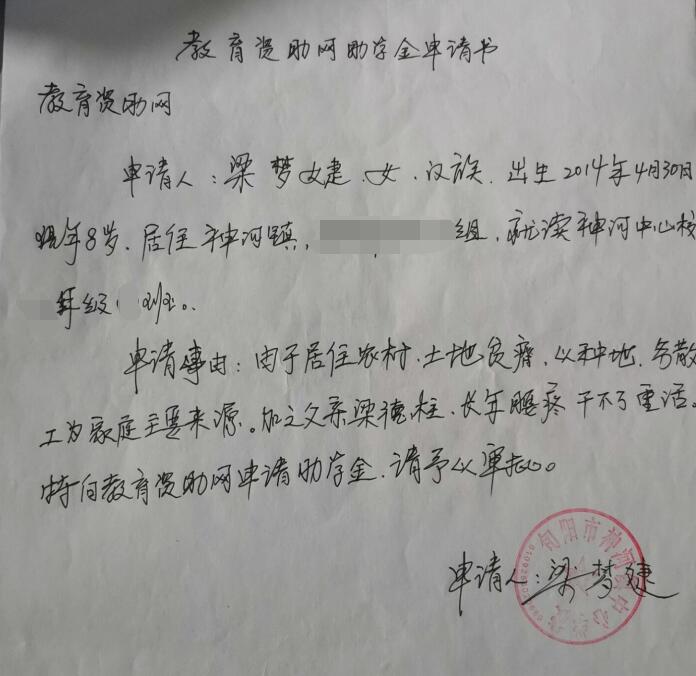 教育资助网助学金申请书
教育资助网
申请人：梁梦婕.女.汉族.出生2014年4月30日
现年8岁.居住神河镇，组，就读神河中心校
年级 班。
申请事由：由于居住农村.土地贫瘠，以种地.务散
工为家庭主要来源。加之父亲梁德柱，长年腰疼干不了重活。
特向教育资助网申请助学金，请予以审批。
旬阳市神河 中心
申请人：梁梦婕